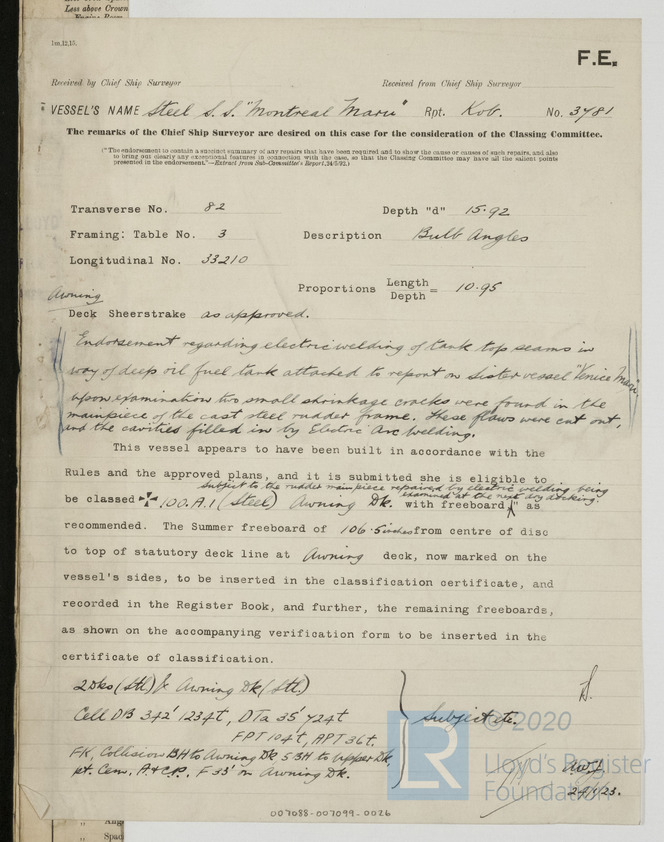 Less above Crown
Jan.,12,15.
F.E.
Received by Chief Ship Surveyor
Received from Chief Ship Surveyor
VESSEL'S NAME Steel S.S. "Montreal Maru" Rpt. Kob. No. 3781
The remarks of the Chief Ship Surveyor are desired on this case for the consideration of the Classing Committee.
("The endorsement to contain a succinct summary of any repairs that have been required and to show the cause or causes of such repairs, and also
to bring out clearly any exceptional features in connection with the case, so that the Classing Committee may have all the salient points
presented in the endorsement."—Extract from Sub-Committee's Report, 24/5/92.)
Transverse No. 82 Depth "d" 15.92
Framing: Table No. 3 Description Bulb Angles
Longitudinal No. 33210
Proportions Length
Depth = 10.95
Awning
Deck Sheerstrake as approved.
Endorsement regarding electric welding of tank top seams in
way of deep oil fuel tank attached to report on Sister vessel "Venice Maru"
upon examination two small shrinkage cracks were found in the
mainpiece of the cast steel rudder frame. These flaws were cut out,
and the cavities filled in by Electric Arc Welding.
This vessel appears to have been built in accordance with the
Rules and the approved plans, and it is submitted she is eligible to
subject to the rudder mainpiece repaired by electric welding being
examined at the next dry docking.
be classed ✠ 100.A.1 (Steel) Awning Dk. with freeboard" as
recommended. The Summer freeboard of 106.5 inches from centre of disc
to top of statutory deck line at Awning deck, now marked on the
vessel's sides, to be inserted in the classification certificate, and
recorded in the Register Book, and further, the remaining freeboards,
as shown on the accompanying verification form to be inserted in the
certificate of classification.
2 Dks (Stl) & Awning Dk (Stl.)
Cell DB 342' 1234t, DTa 35' 724t
FPT 104t, APT 36t.
FK, Collision BH to Awning Dk 5 BH to Upper Dk,
pt. Cem, A&CP. F 33' on Awning Dk.
Subject etc.
© 2020
LR
Lloyd's Register
Foundation
24/1/23.
007088-007099-0026